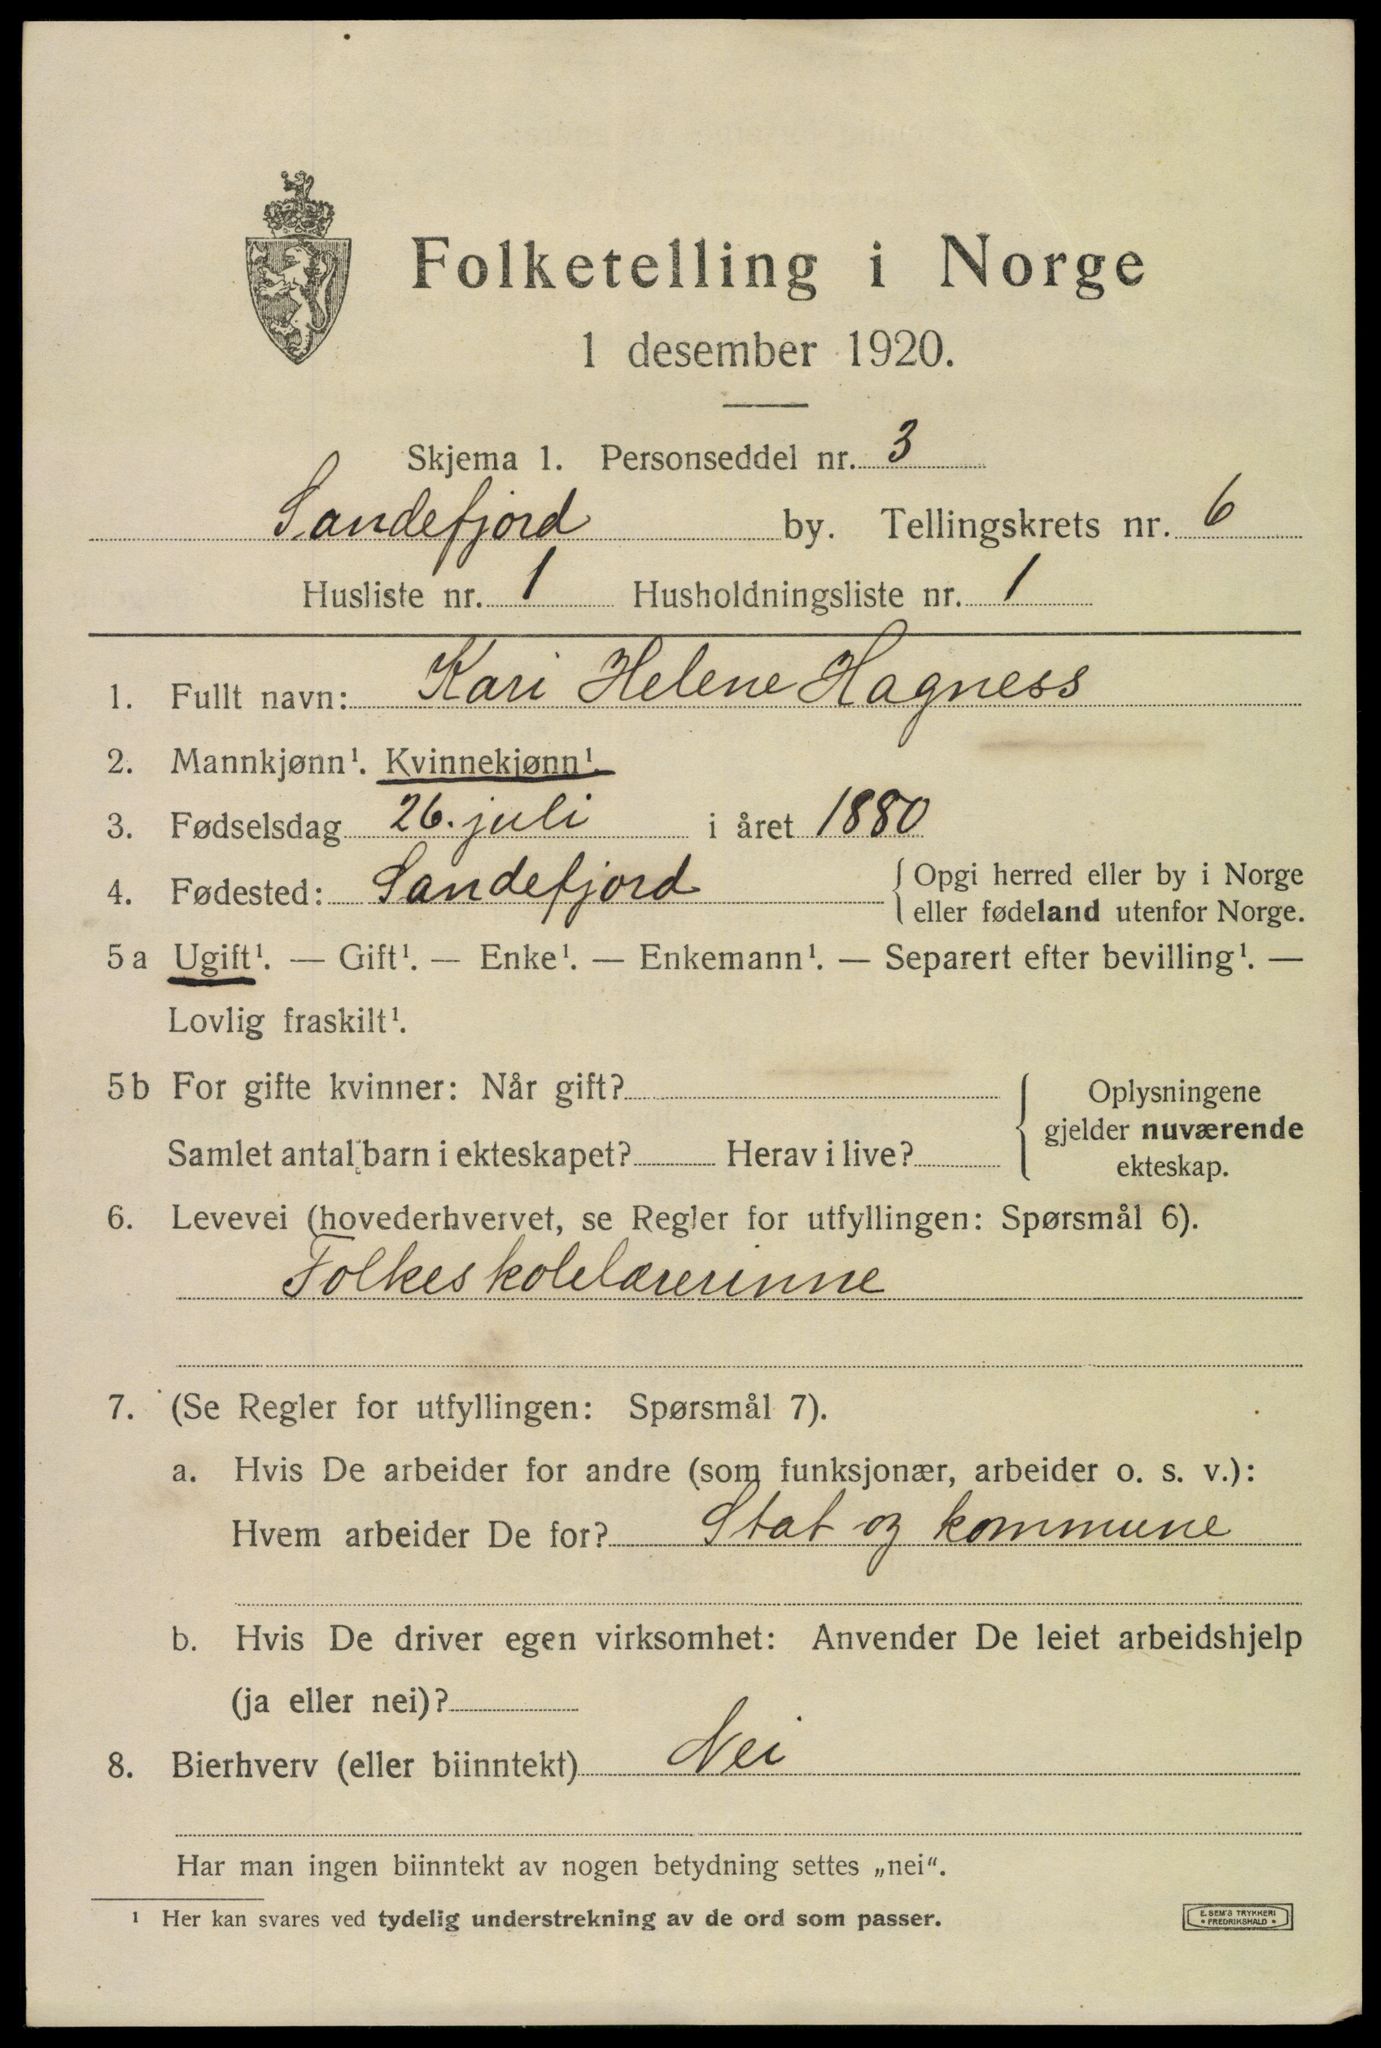 Folketelling i Norge
1 desember 1920.
Skjema 1. Personseddel nr. 3
Sandefjord by. Tellingskrets nr. 6
Husliste nr. 1 Husholdningsliste nr. 1
1. Fullt navn: Kari Helene Hagness
2. Mannkjønn¹. Kvinnekjønn¹.
3. Fødselsdag 26. juli i året 1880
4. Fødested: Sandefjord { Opgi herred eller by i Norge
eller fødeland utenfor Norge.
5a Ugift¹. — Gift¹. — Enke¹. — Enkemann¹. — Separert efter bevilling¹. —
Lovlig fraskilt¹.
5b For gifte kvinner: Når gift?
Samlet antal barn i ekteskapet? Herav i live?
{ Oplysningene
gjelder nuværende
ekteskap.
6. Levevei (hovederhvervet, se Regler for utfyllingen: Spørsmål 6).
Folkeskolelærerinne
7. (Se Regler for utfyllingen: Spørsmål 7).
a. Hvis De arbeider for andre (som funksjonær, arbeider o. s. v.):
Hvem arbeider De for? Stat og kommune
b. Hvis De driver egen virksomhet: Anvender De leiet arbeidshjelp
(ja eller nei)?
8. Bierhverv (eller biinntekt) Nei
Har man ingen biinntekt av nogen betydning settes „nei“.
¹ Her kan svares ved tydelig understrekning av de ord som passer.
E. SEM'S TRYKKERI
• FREDRIKSHALD •